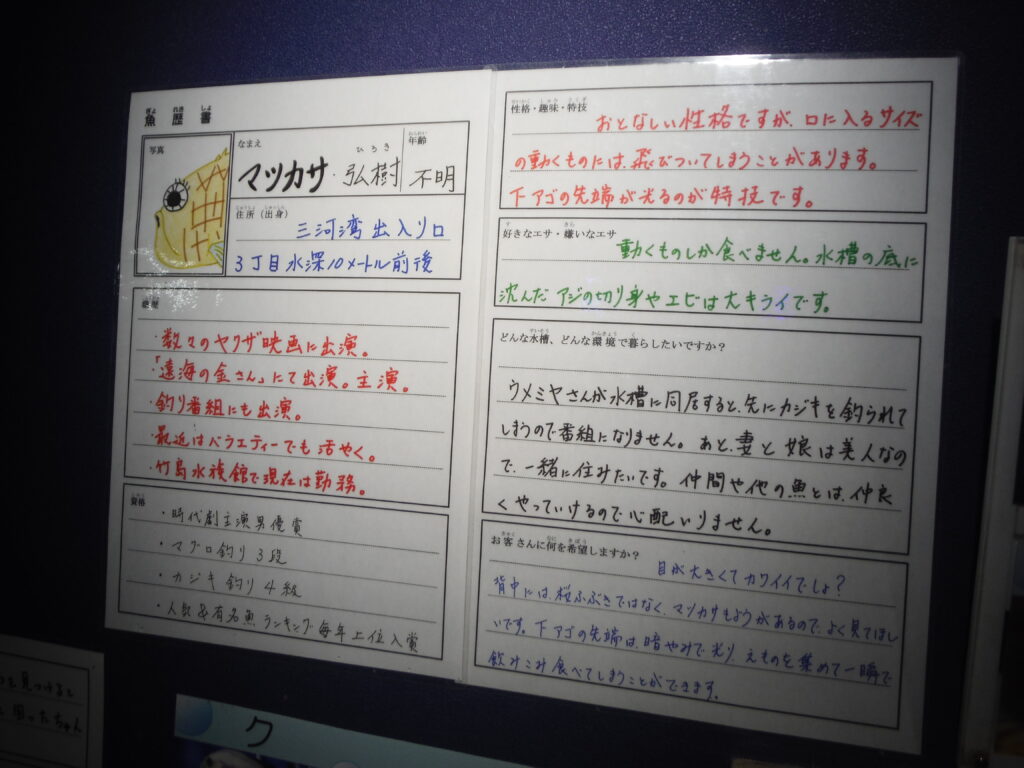 魚歴書
ぎょ れき しょ
写真
なまえ
ひろき
マツカサ・弘樹
年齢
不明
住所（出身）
三河湾出入り口
3丁目水深10メートル前後
・数々のヤクザ映画に出演。
・「遠海の金さん」にて出演。主演。
・釣り番組にも出演。
・最近はバラエティーでも活やく。
・竹島水族館で現在は勤務。
資格
・時代劇主演男優賞
・マグロ釣り3段
・カジキ釣り4級
・人気&有名魚ランキング毎年上位入賞
性格・趣味・特技
おとなしい性格ですが、口に入るサイズ
の動くものには、飛びついてしまうことがあります。
下アゴの先端が光るのが特技です。
好きなエサ・嫌いなエサ
動くものしか食べません。水槽の底に
沈んだアジの切り身やエビは大キライです。
どんな水槽、どんな環境で暮らしたいですか？
ウメミヤさんが水槽に同居すると、先にカジキを釣られて
しまうので番組になりません。あと、妻と娘は美人なの
で、一緒に住みたいです。仲間や他の魚とは、仲良
くやっていけるので心配いりません。
お客さんに何を希望しますか？
目が大きくてカワイイでしょ？
背中には、桜ふぶきではなく、マツカサもようがあるので、よく見てほし
いです。下アゴの先端は、暗やみで光り、えものを集めて一瞬で
飲みこみ食べてしまうことができます。
を見つけると
困ったちゃん
ク